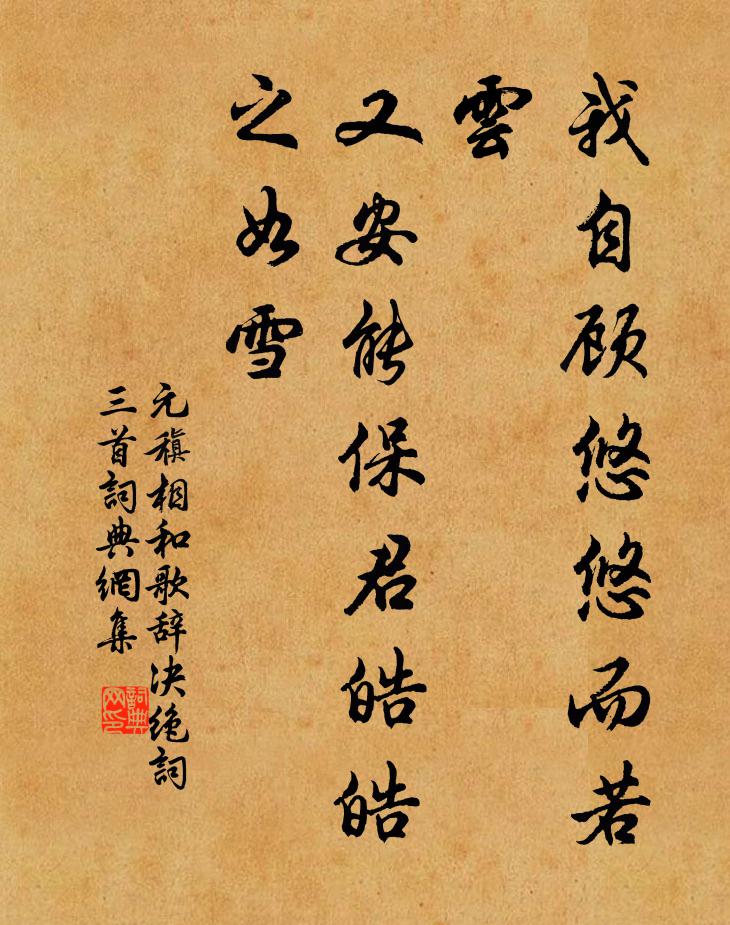 我自顾悠悠而若
雲
又安能保君皓皓
之如雪
元稹相和歌辞决绝詞
三首詞典網集
詞典
网印